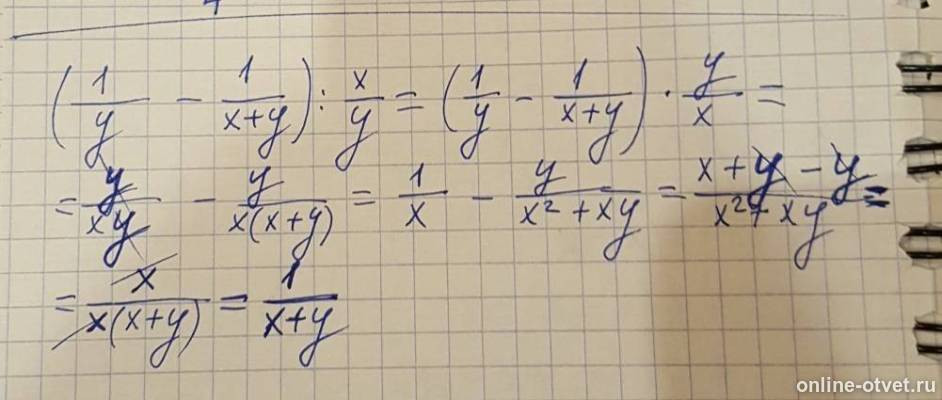 (1/y - 1/(x+y)) : x/y = (1/y - 1/(x+y)) · y/x =
= y/(xy) - y/(x(x+y)) = 1/x - y/(x² + xy) = (x + y - y)/(x² + xy) =
= x/(x(x+y)) = 1/(x+y)
online-otvet.ru